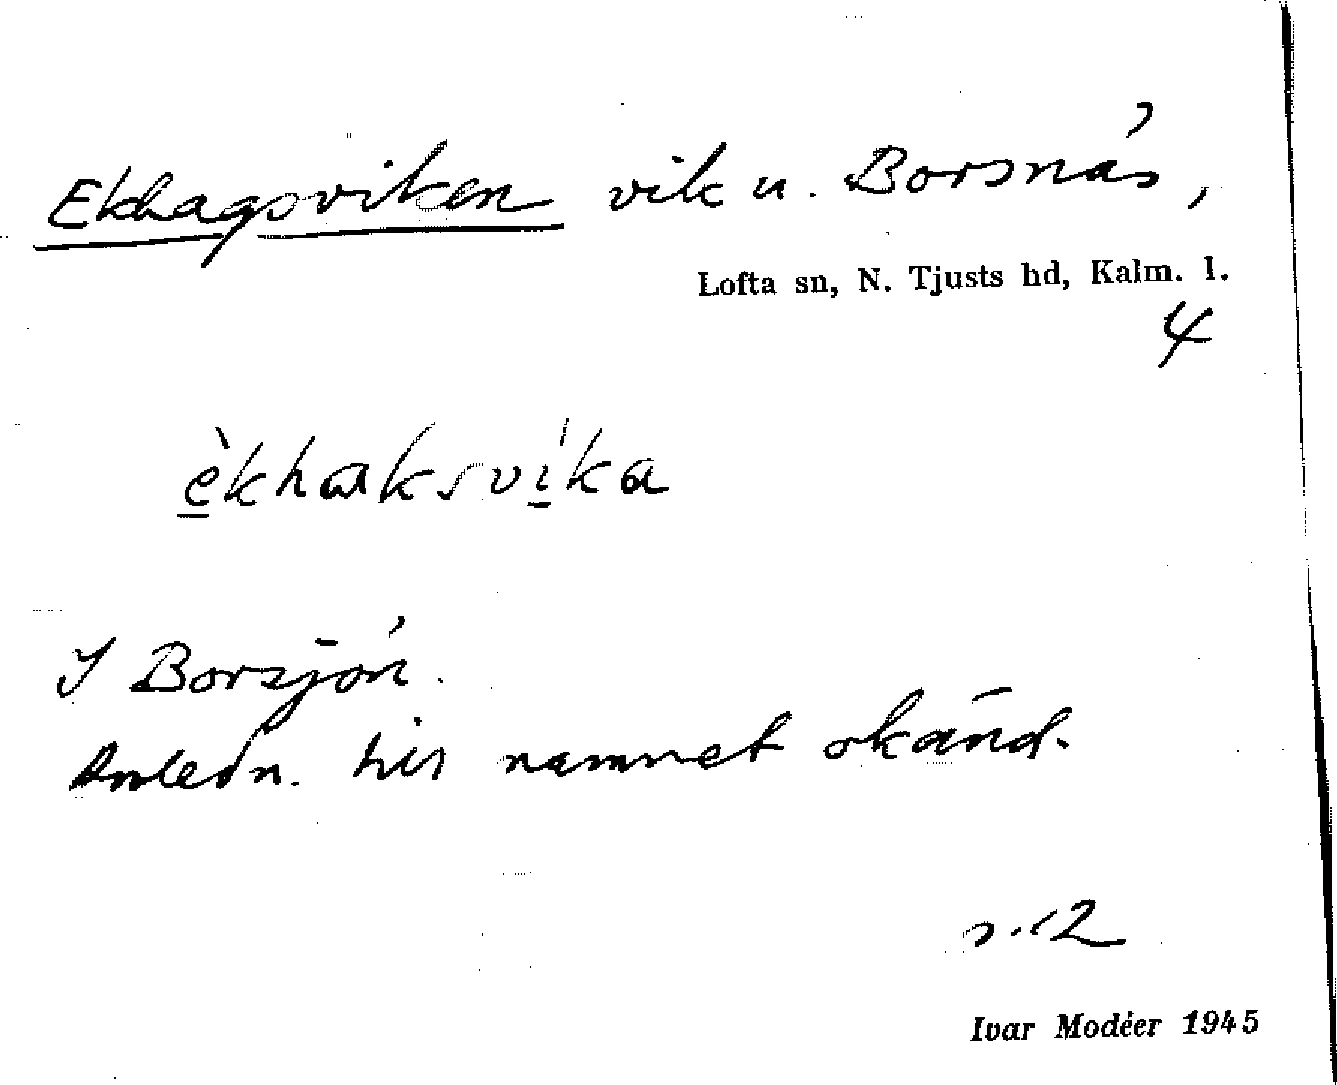 Ekhagsviken vik u. Borsnäs,
Lofta sn, N. Tjusts hd, Kalm. l.
4
èkhaksvika
I Borsjön.
Anledn. till namnet okänd.
s. 12
Ivar Modéer 1945